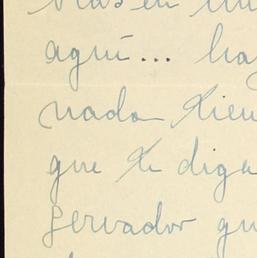 aquí... ha
nada tien
que te diga
servador qu